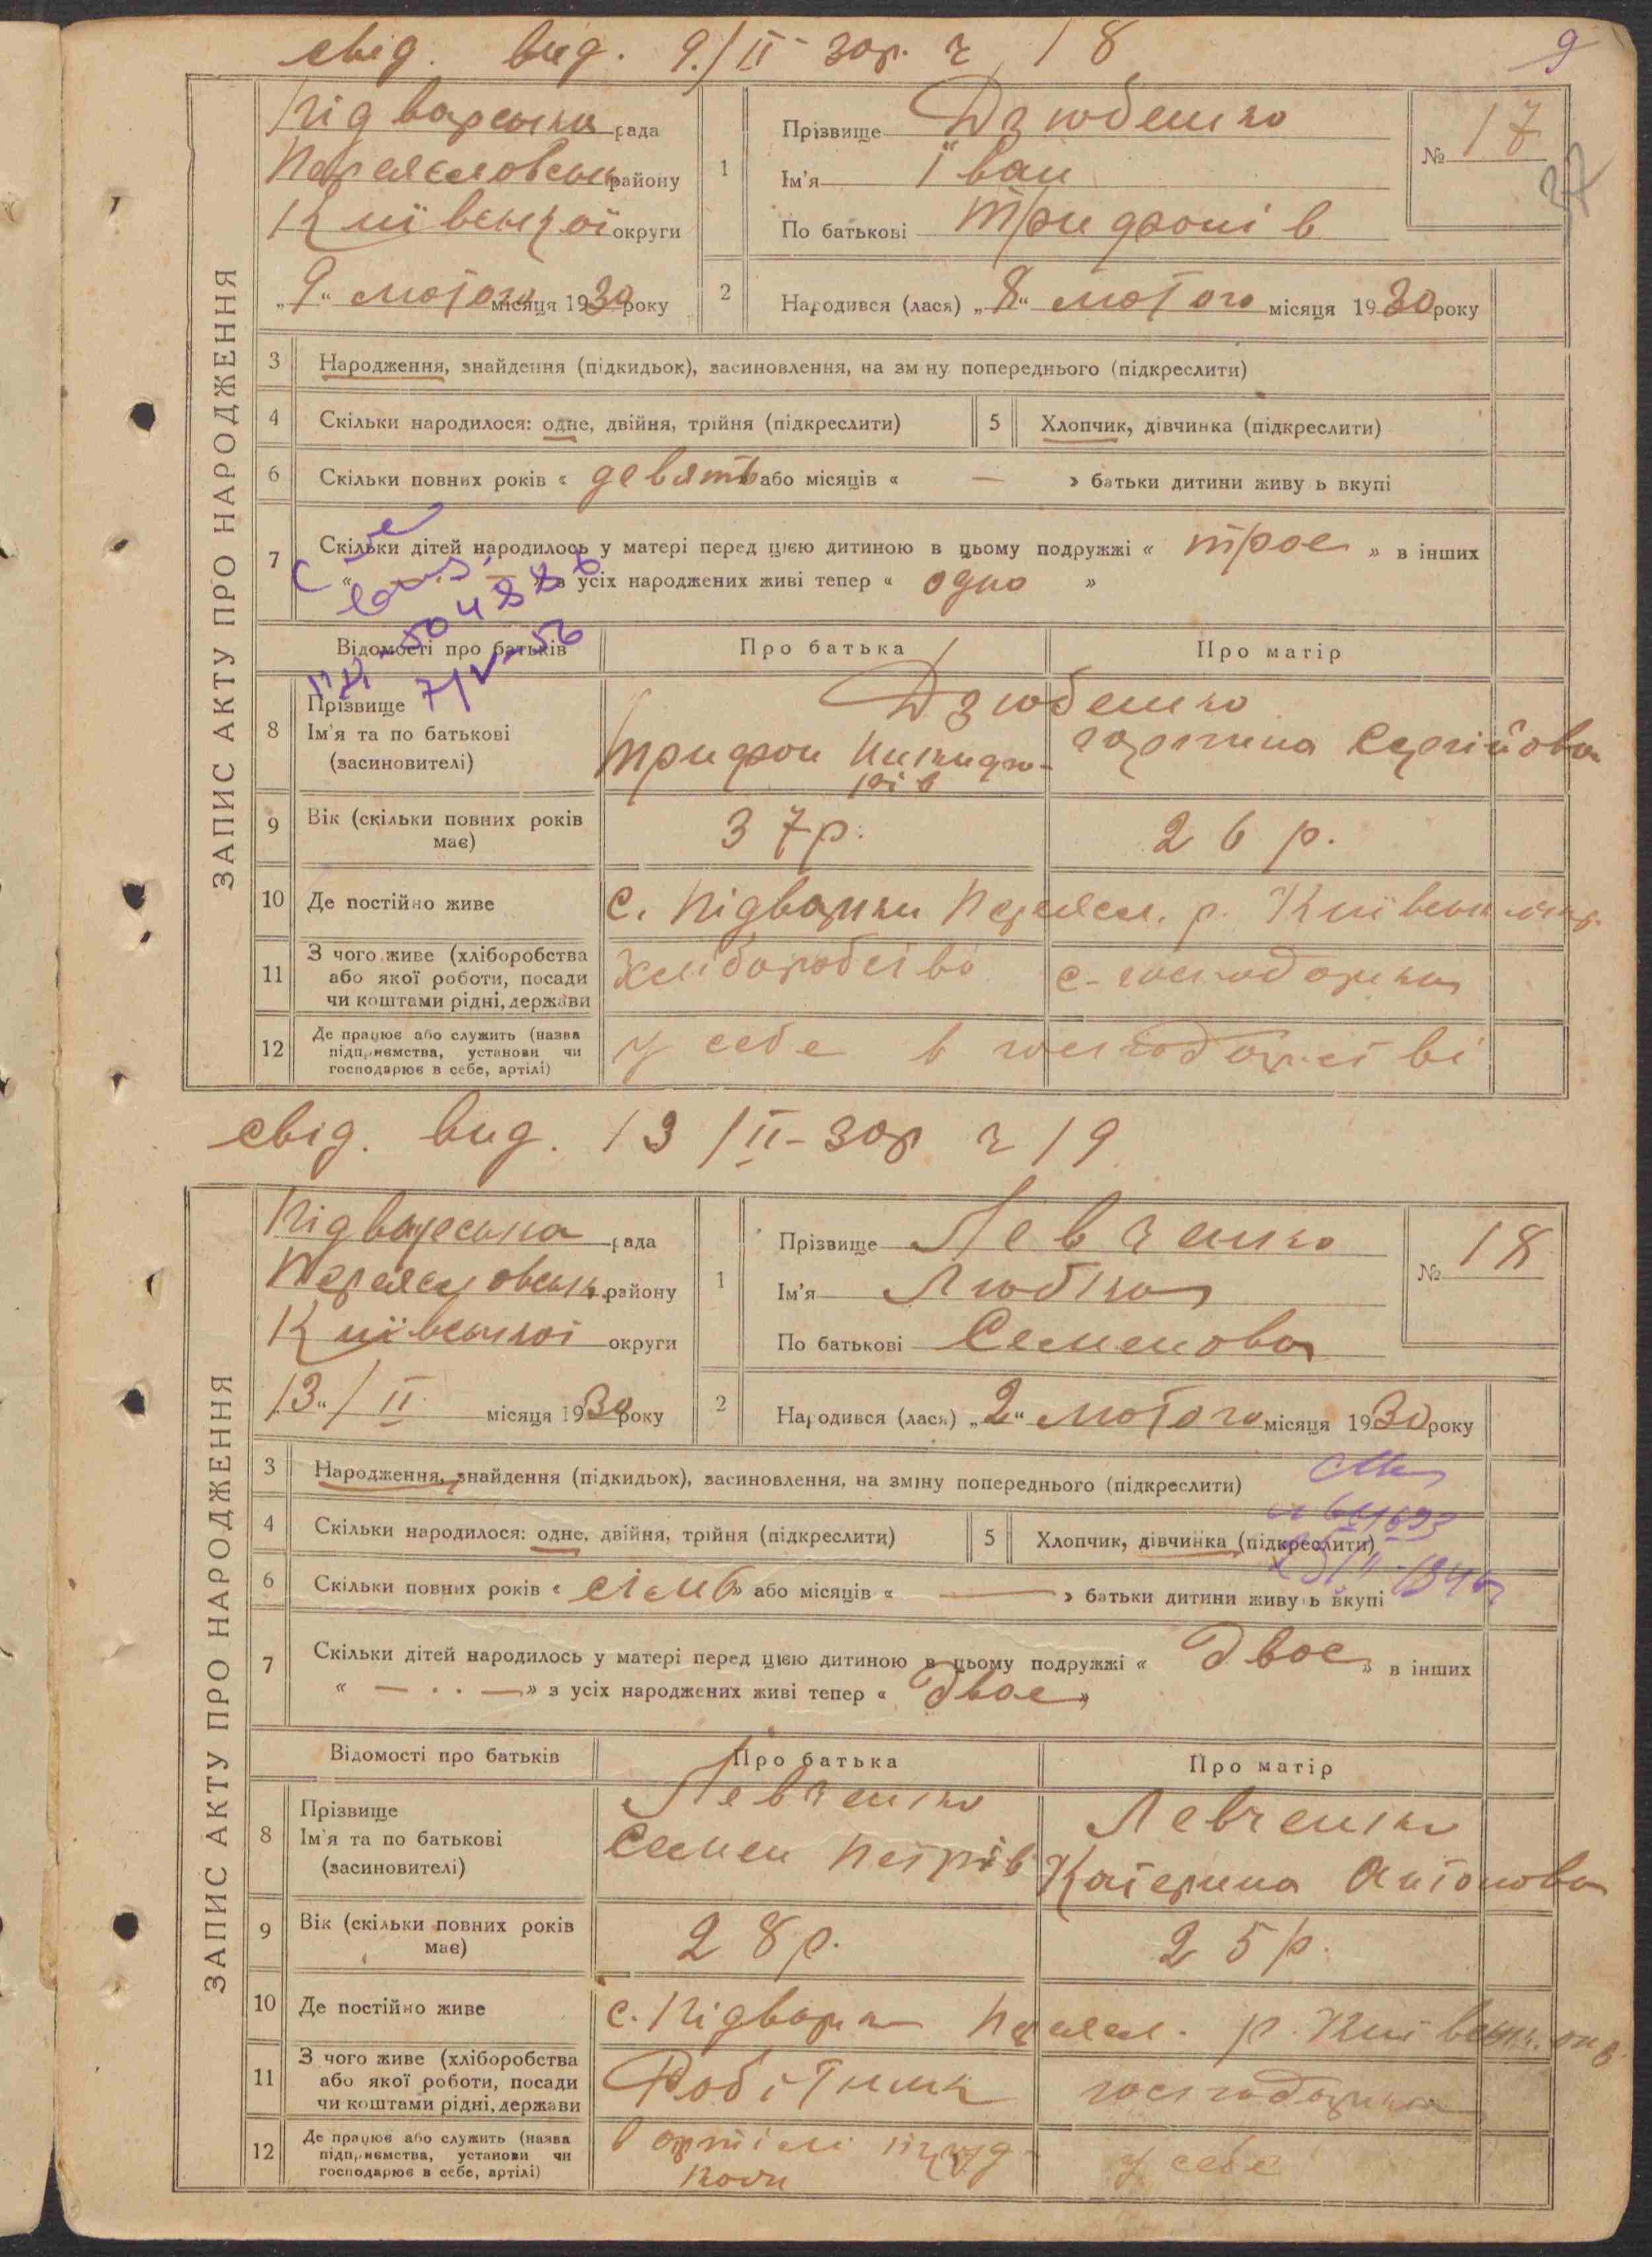 свід. вид. 9/II-30р. ч 18
9
ЗАПИС АКТУ ПРО НАРОДЖЕННЯ
Підварська рада
Переяславськ району
Київської округи
„9“ лютого місяця 1930 року
1 Прізвище Дзюбенко
Ім'я Іван
По батькові Трифонів
№ 17
2 Народився (лася) „8“ лютого місяця 1930 року
3 Народження, знайдення (підкидьок), засиновлення, на зм ну попереднього (підкреслити)
4 Скільки народилося: одне, двійня, трійня (підкреслити)
5 Хлопчик, дівчинка (підкреслити)
6 Скільки повних років « девять » або місяців « — » батьки дитини живу ь вкупі
7 Скільки дітей народилось у матері перед цією дитиною в цьому подружжі « троє » в інших
« — » з усіх народжених живі тепер « одно »
7/V-56
Відомості про батьків Про батька Про матір
8 Прізвище
Ім'я та по батькові
(засиновителі)
Дзюбенко
Трифон
Сергійова
9 Вік (скільки повних років має)
37р. 26 р.
10 Де постійно живе
с. Підварки Переясл. р. Київськ окр.
11 З чого живе (хліборобства
або якої роботи, посади
чи коштами рідні, держави
Хліборобство с-господарка
12 Де працює або служить (назва
підприємства, установи чи
господарює в себе, артілі)
у себе в господарстві
свід. вид. 13/II-30р ч 19
ЗАПИС АКТУ ПРО НАРОДЖЕННЯ
Підварська рада
Переяславськ. району
Київської округи
„13“/II місяця 1930 року
1 Прізвище Левченко
Ім'я Любка
По батькові Семенова
№ 18
2 Народився (лася) „2“ лютого місяця 1930 року
3 Народження, знайдення (підкидьок), засиновлення, на зміну попереднього (підкреслити)
4 Скільки народилося: одне, двійня, трійня (підкреслити)
5 Хлопчик, дівчинка (підкреслити)
6 Скільки повних років « сім » або місяців « — » батьки дитини живу ь вкупі
7 Скільки дітей народилось у матері перед цією дитиною в цьому подружжі « двоє » в інших
« — . . — » з усіх народжених живі тепер « двоє »
Відомості про батьків Про батька Про матір
8 Прізвище
Ім'я та по батькові
(засиновителі)
Левченко
Семен Петрів
Левченко
Катерина Антонова
9 Вік (скільки повних років має)
28р. 25р.
10 Де постійно живе
с. Підварки Переясл. р. Київськ. окр.
11 З чого живе (хліборобства
або якої роботи, посади
чи коштами рідні, держави
Робітник господарка
12 Де працює або служить (назва
підприємства, установи чи
господарює в себе, артілі)
в артілі
у себе